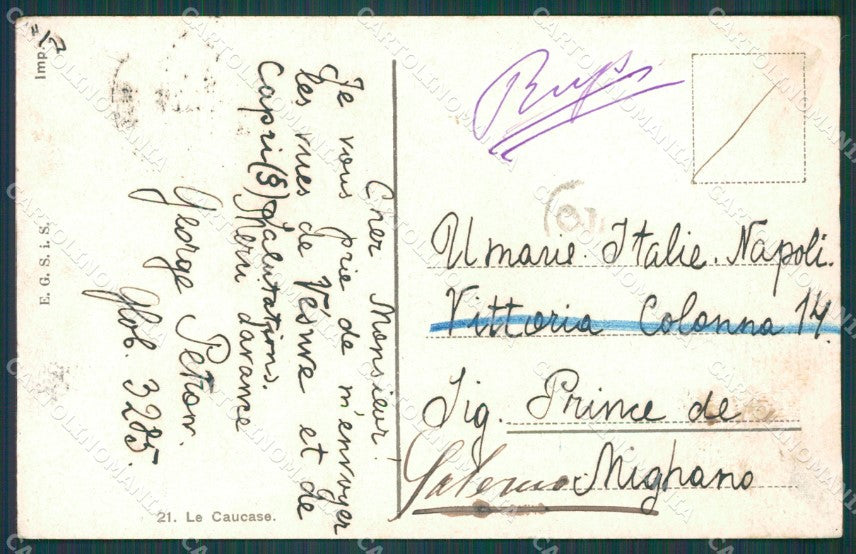 Cher Monsieur!
Je vous prie de m'envoyer
les vues de Vésuve et de
Capri(8) Salutations.
Merci d'avance
George Petrow.
Glob. 3285.
Umanie. Italie. Napoli.
Vittoria Colonna 14.
Sig. Prince de
Mignano
Salerno
21. Le Caucase.
E. G. S. i. S.
Imp.
CARTOLINOMANIA